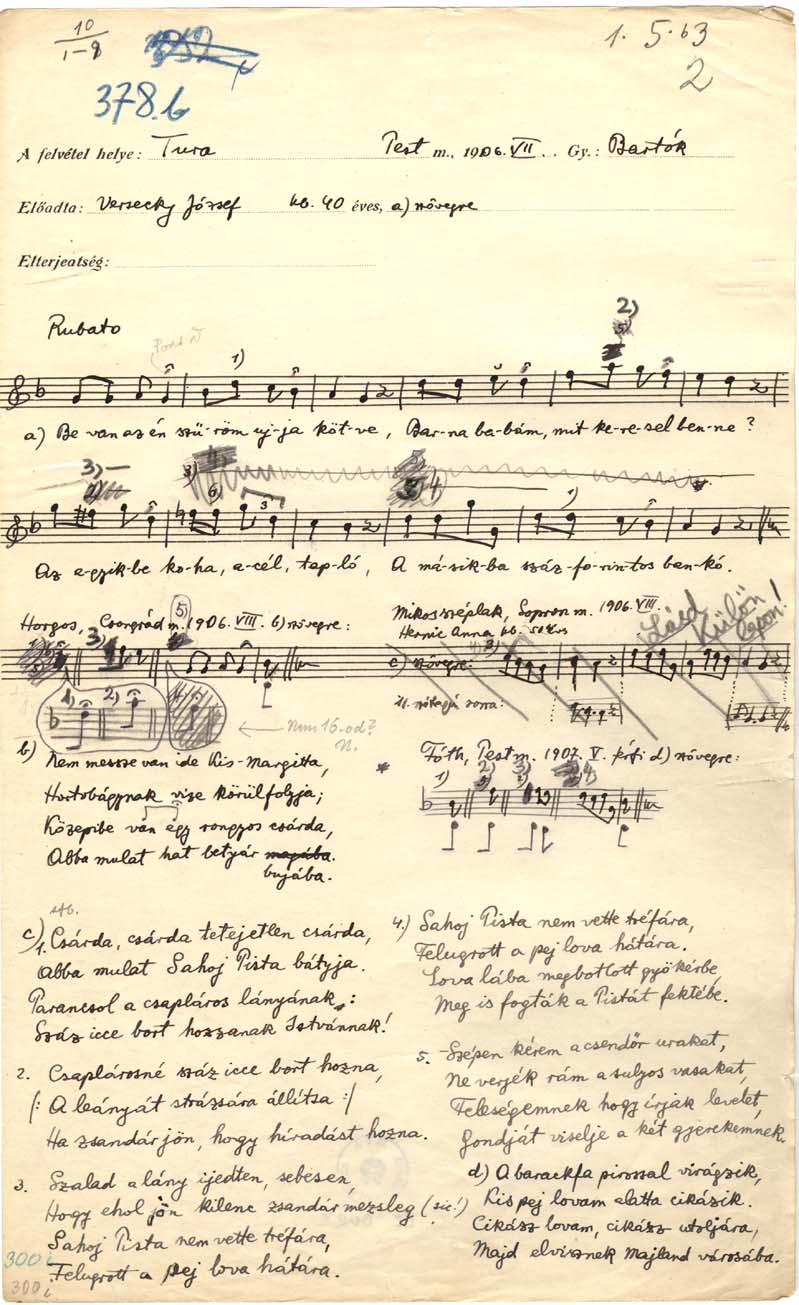 10
1-8
378.b
1.5.63
2
A felvétel helye: Tura Pest m., 1906. VII. Gy.: Bartók
Előadta: Versecky József kb. 40 éves, a) szövegre
Elterjedtség:
Rubato
1)
2)
a) Be van az én szü-röm uj-ja köt-ve, Bar-na ba-bám, mit ke-re-sel ben-ne?
3)
6)
3
4
Az e-gyik-be ko-ha, a-cél, tap-ló, A má-sik-ba száz-fo-rin-tos ban-kó.
Horgos, Csongrád m. 1906. VIII. b) szövegre:
5)
3)
1) 2)
Nem 16-od?
Mikosszéplak, Sopron m. 1906. VIII.
Hernic Anna kb. 50 éves
c) szövegre:
Lásd külön lapon!
b) Nem messze van ide Kis-Margitta,
Hortobágynak vize körülfolyja;
Közepibe van egy rongyos csárda,
Abba mulat hat betyár magába.
bujába.
stb.
* Fóth, Pest m. 1907. V. férfi d) szövegre:
1) 2) 3) 4
c) 1. Csárda, csárda tetejetlen csárda,
Abba mulat Sahoj Pista bátyja.
Parancsol a csapláros lányának:
Száz icce bort hozzanak Istvánnak!
2. Csaplárosné száz icce bort hozna,
/: A leányát strázsára állítsa :/
Ha zsandár jön, hogy híradást hozna.
3. Szalad a lány ijedten, sebesen,
Hogy ehol jön kilenc zsandár mezsleg (sic!)
Sahoj Pista nem vette tréfára,
Felugrott a pej lova hátára.
4.) Sahoj Pista nem vette tréfára,
Felugrott a pej lova hátára.
Lova lába megbotlott gyökérbe,
Meg is fogták a Pistát fektébe.
5. Szépen kérem a csendőr urakat,
Ne verjék rám a sulyos vasakat,
Feleségemnek hogy írják levelet,
Gondját viselje a két gyerekemnek.
d) A barackfa pirossal virágzik,
Kis pej lovam alatta cikázik.
Cikázz lovam, cikázz utoljára,
Majd elvisznek Majland városába.
300 b
300 b